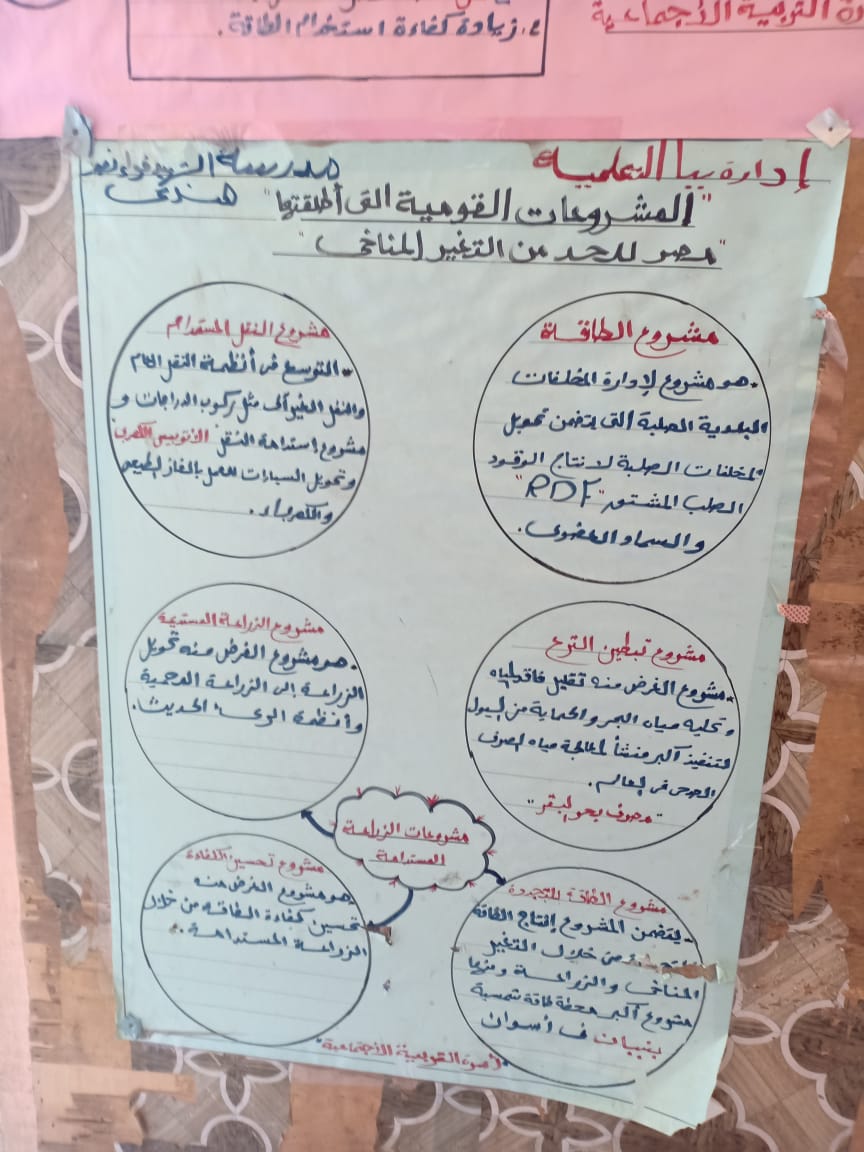 ٤. زيادة كفاءة استخدام الطاقة.
التربية الاجتماعية
إدارة ببا التعلمية
مدرسة الشهيد فؤاد
هندي
"المشروعات القومية التى أطلقتها
"مصر للحد من التغير المناخى"
مشروع الطاقة
•هو مشروع لإدارة المخلفات
البلدية الصلبة التى يتضمن تحويل
المخلفات الصلبة لانتاج الوقود
الصلب المشتور "RDF"
والسماد العضوى.
مشروع النقل المستدام
•التوسع فى أنظمة النقل العام
والنقل الغير آلى مثل ركوب الدراجات و
مشروع إستدامة النقل الأتوبيس الكهربى
وتحويل السيارات للعمل بالغاز الطبيعى
والكهرباء.
مشروع تبطين الترع
•مشروع الغرض منه تقليل فاقد المياه
وتحليه مياه البحر والحماية من السيول
لتنفيذ أكبر منشأ لمعالجة مياه الصرف
الصحى فى العالم.
"مصرف بحر البقر"
مشروع الزراعة المستديمة
•هو مشروع الغرض منه تحويل
الزراعة إلى الزراعة المحمية
وأنظمة الرى الحديث.
مشروعات الزراعة
المستدامة
مشروع الطاقة المتجددة
-يتضمن المشروع إنتاج الطاقة
من خلال التغير
المناخى والزراعة ومنها
مشروع أكبر محطة طاقة شمسية
بنبان فى أسوان
مشروع تحسين الكفاءة
•هو مشروع الغرض منه
تحسين كفاءة الطاقه من خلال
الزراعة المستدامة.
"أسرة التربية الاجتماعية"